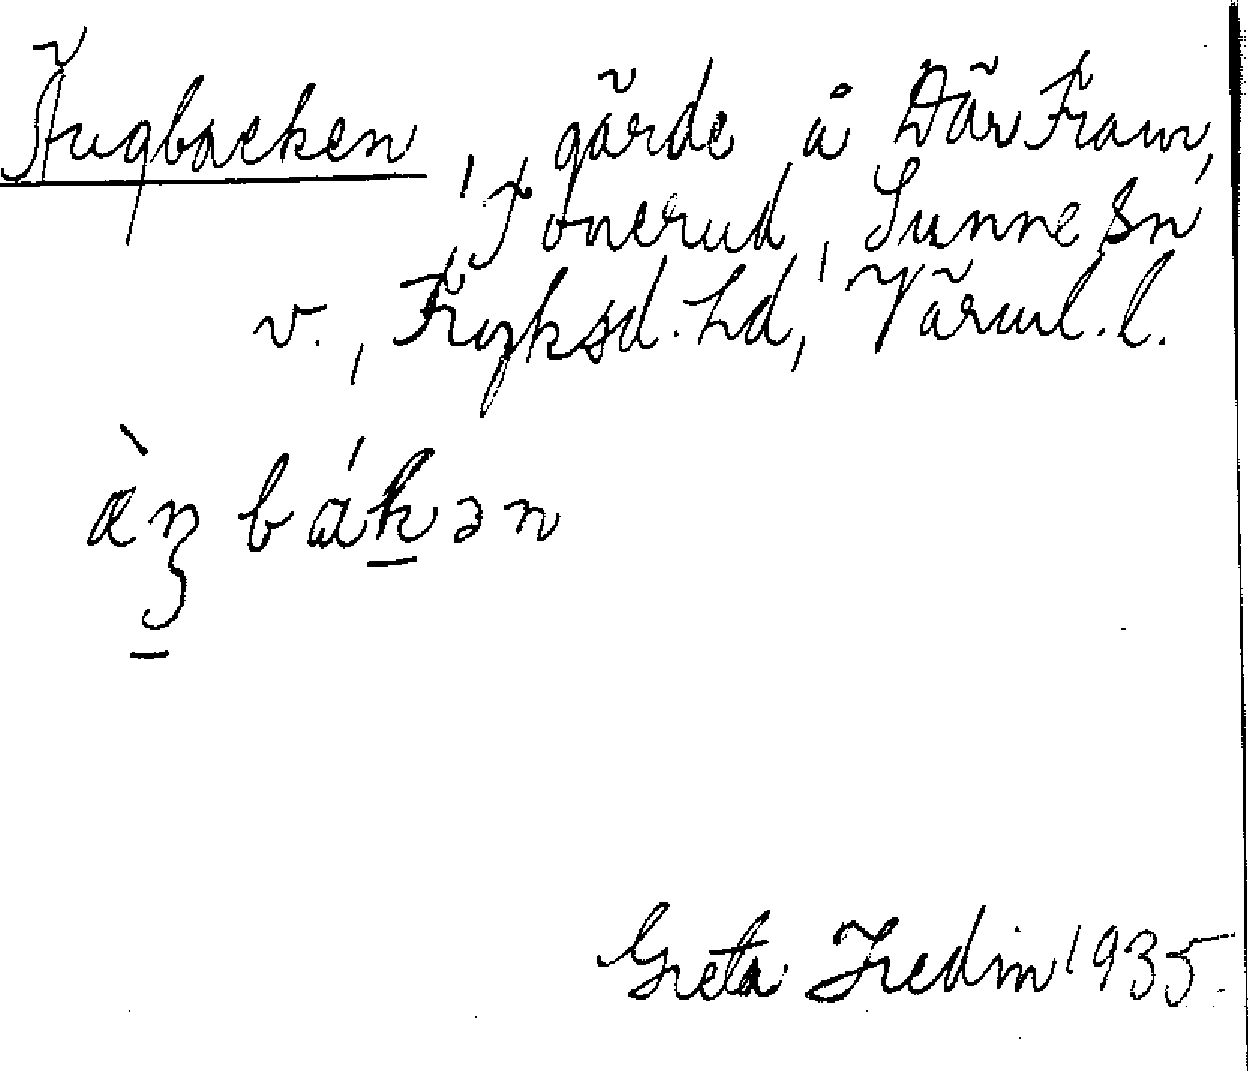 Ängbacken, gärde å Där Fram,
Tonerud, Sunne sn
v., Fryksd. hd, Värml. l.
æ̀ŋ bákən
Greta Fredin 1935.